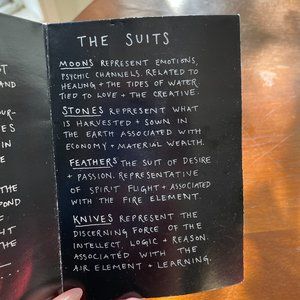 OT
AND
OUR-
ES
IN
E
THE
POND
C
HT
THE
THE SUITS
MOONS REPRESENT EMOTIONS,
PSYCHIC CHANNELS. RELATED TO
HEALING + THE TIDES OF WATER.
TIED TO LOVE + THE CREATIVE.
STONES REPRESENT WHAT
IS HARVESTED + SOWN IN
THE EARTH ASSOCIATED WITH
ECONOMY + MATERIAL WEALTH.
FEATHERS THE SUIT OF DESIRE
+ PASSION. REPRESENTATIVE
OF SPIRIT FLIGHT + ASSOCIATED
WITH THE FIRE ELEMENT.
KNIVES REPRESENT THE
DISCERNING FORCE OF THE
INTELLECT, LOGIC + REASON.
ASSOCIATED WITH THE
AIR ELEMENT + LEARNING.